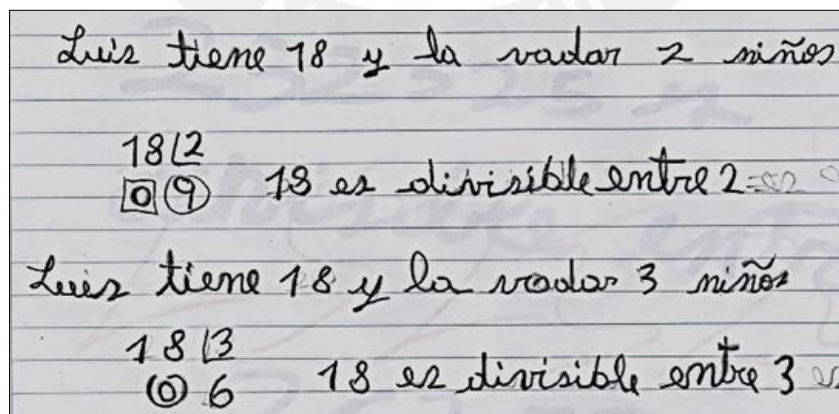 Luis tiene 18 y la vadar 2 niños
18 2
0 9 18 es divisible entre 2
Luis tiene 18 y la vadar 3 niños
18 3
0 6 18 es divisible entre 3